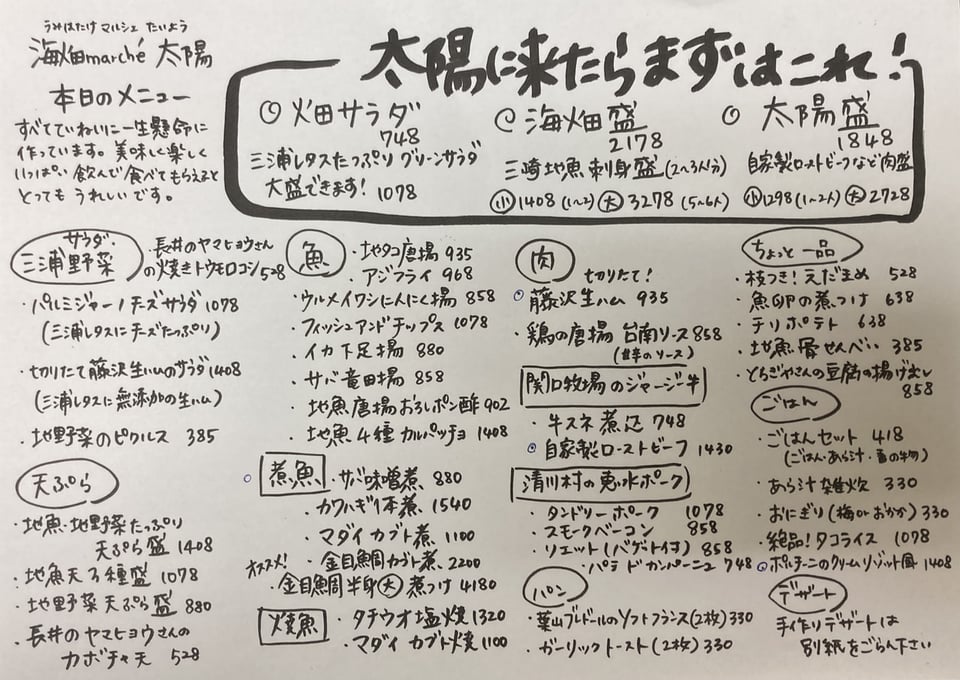 うみはたけ マルシェ たいよう
海畑marché 太陽
本日のメニュー
すべてていねいに一生懸命に
作っています。美味しく楽しく
いっぱい飲んで食べてもらえると
とっても うれしいです。
太陽に来たらまずはこれ!
畑サラダ
748
三浦レタスたっぷり グリーンサラダ
大盛できます! 1078
海畑盛
2178
三崎地魚刺身盛(2~3人分)
小1408(1~2) 大3278(5~6人)
太陽盛
1848
自家製ローストビーフなど肉盛
小1298(1~2人) 大2728
サラダ・
三浦野菜
・長井のヤマヒョウさん
の焼きトウモロコシ528
・パルミジャーノチーズサラダ 1078
(三浦レタスにチーズたっぷり)
・切りたて藤沢生ハムのサラダ1408
(三浦レタスに無添加の生ハム)
・地野菜のピクルス 385
天ぷら
・地魚・地野菜たっぷり
天ぷら盛 1408
・地魚天3種盛 1078
・地野菜天ぷら盛 880
・長井のヤマヒョウさんの
カボチャ天 528
魚
・地タコ唐揚 935
・アジフライ 968
・ウルメイワシにんにく揚 858
・フィッシュアンドチップス 1078
・イカ下足揚 880
・サバ竜田揚 858
・地魚唐揚おろしポン酢 902
・地魚4種カルパッチョ 1408
煮魚
・サバ味噌煮 880
・カワハギ1本煮 1540
・マダイカブト煮 1100
・金目鯛カブト煮 2200
オススメ!
・金目鯛半身(大)煮つけ 4180
焼魚
・タチウオ塩焼 1320
・マダイカブト焼 1100
肉
切りたて!
藤沢生ハム 935
・鶏の唐揚 台南ソース858
(甘辛のソース)
関口牧場のジャージー牛
・牛スネ煮込 748
自家製ローストビーフ 1430
清川村の恵水ポーク
・タンドリーポーク 1078
・スモークベーコン 858
・リエット(バゲット付) 858
・パテドカンパーニュ 748
パン
・葉山ブレドールのソフトフランス(2枚)330
・ガーリックトースト(2枚)330
ちょっと一品
・枝つき!えだまめ 528
・魚卵の煮つけ 638
・テリポテト 638
・地魚骨せんべい 385
・とらぎやさんの豆腐の揚げ出し
858
ごはん
・ごはんセット 418
(ごはん・あら汁・香の物)
・あら汁雑炊 330
・おにぎり(梅orおかか)330
・絶品!タコライス 1078
ポルチーニのクリームリゾット風 1408
デザート
手作りデザートは
別紙をごらん下さい